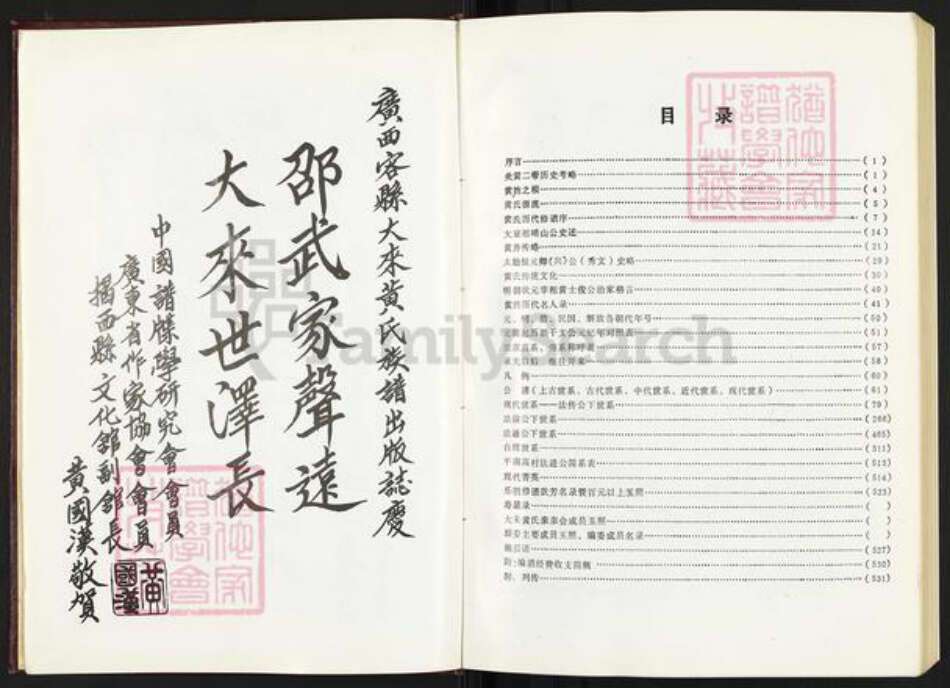 廣西容縣大來黃氏族譜出版誌慶
邵武家聲遠
大來世澤長
中國譜牒學研究會會員
廣東省作家協會會員
揭西縣文化館副館長
黃國漢敬賀
黃國漢
FamilySearch
目 录
序言(1)
炎黄二帝历史考略(1)
黄姓之根(4)
黄氏源流(5)
黄氏历代修谱序(7)
大始祖峭山公史述(14)
(21)
公(秀文)史略(29)
黄氏传统文化(30)
明朝状元宰相黄士俊公治家格言(40)
黄姓历代名人录(41)
元、明、清、民国、解放各朝代年号(50)
(57)
(58)
凡 例(60)
公 谱(上古世系、古代世系、中代世系、近代世系、现代世系)(61)
现代世系——法传公下世系(79)
公下世系(266)
法通公下世系(465)
台湾世系(511)
平南高村法进公简系表(513)
现代菁英(514)
(523)
( )
大来黄氏理事会成员玉照( )
主要成员玉照、编委成员名录( )
编后语(527)
附:编谱经费收支简概(530)
附:列传(531)